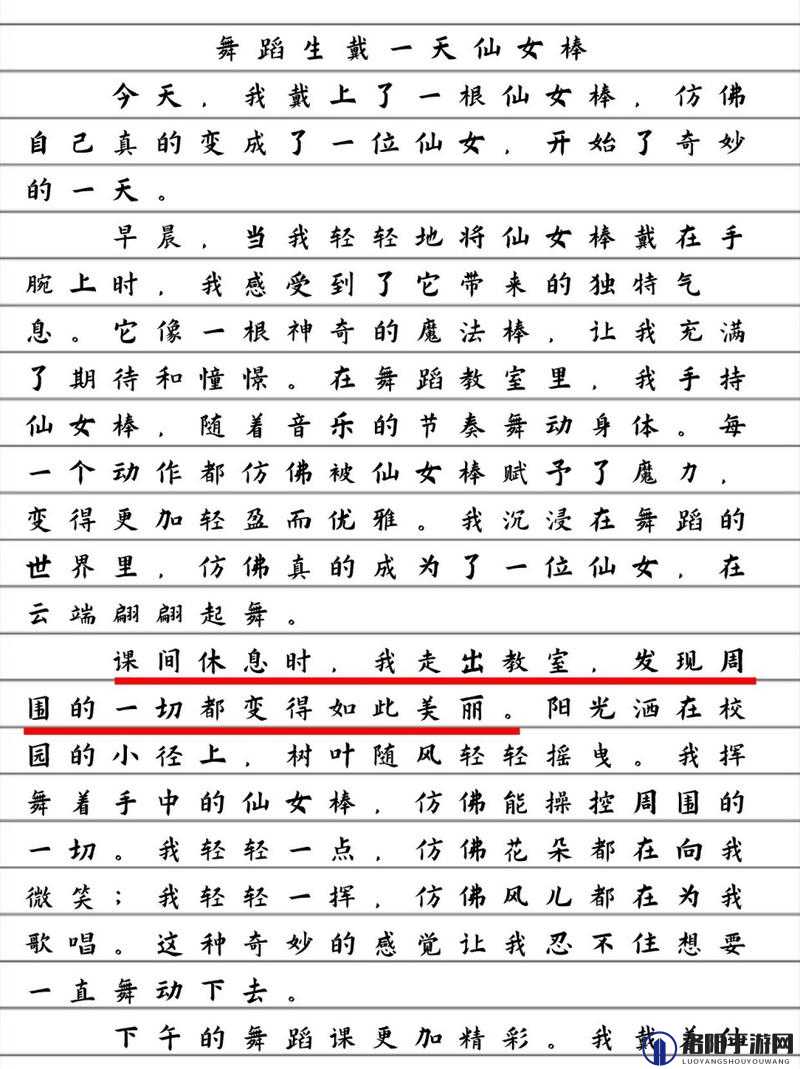 舞蹈生戴一天仙女棒
今天，我戴上了一根仙女棒，仿佛
自己真的变成了一位仙女，开始了奇妙
的一天。
早晨，当我轻轻地将仙女棒戴在手
腕上时，我感受到了它带来的独特气
息。它像一根神奇的魔法棒，让我充满
了期待和憧憬。在舞蹈教室里，我手持
仙女棒，随着音乐的节奏舞动身体。每
一个动作都仿佛被仙女棒赋予了魔力，
变得更加轻盈而优雅。我沉浸在舞蹈的
世界里，仿佛真的成为了一位仙女，在
云端翩翩起舞。
课间休息时，我走出教室，发现周
围的一切都变得如此美丽。阳光洒在校
园的小径上，树叶随风轻轻摇曳。我挥
舞着手中的仙女棒，仿佛能操控周围的
一切。我轻轻一点，仿佛花朵都在向我
微笑；我轻轻一挥，仿佛风儿都在为我
歌唱。这种奇妙的感觉让我忍不住想要
一直舞动下去。
下午的舞蹈课更加精彩。我戴着仙
洛阳平游网
LUOYANGSHOUYOUWANG